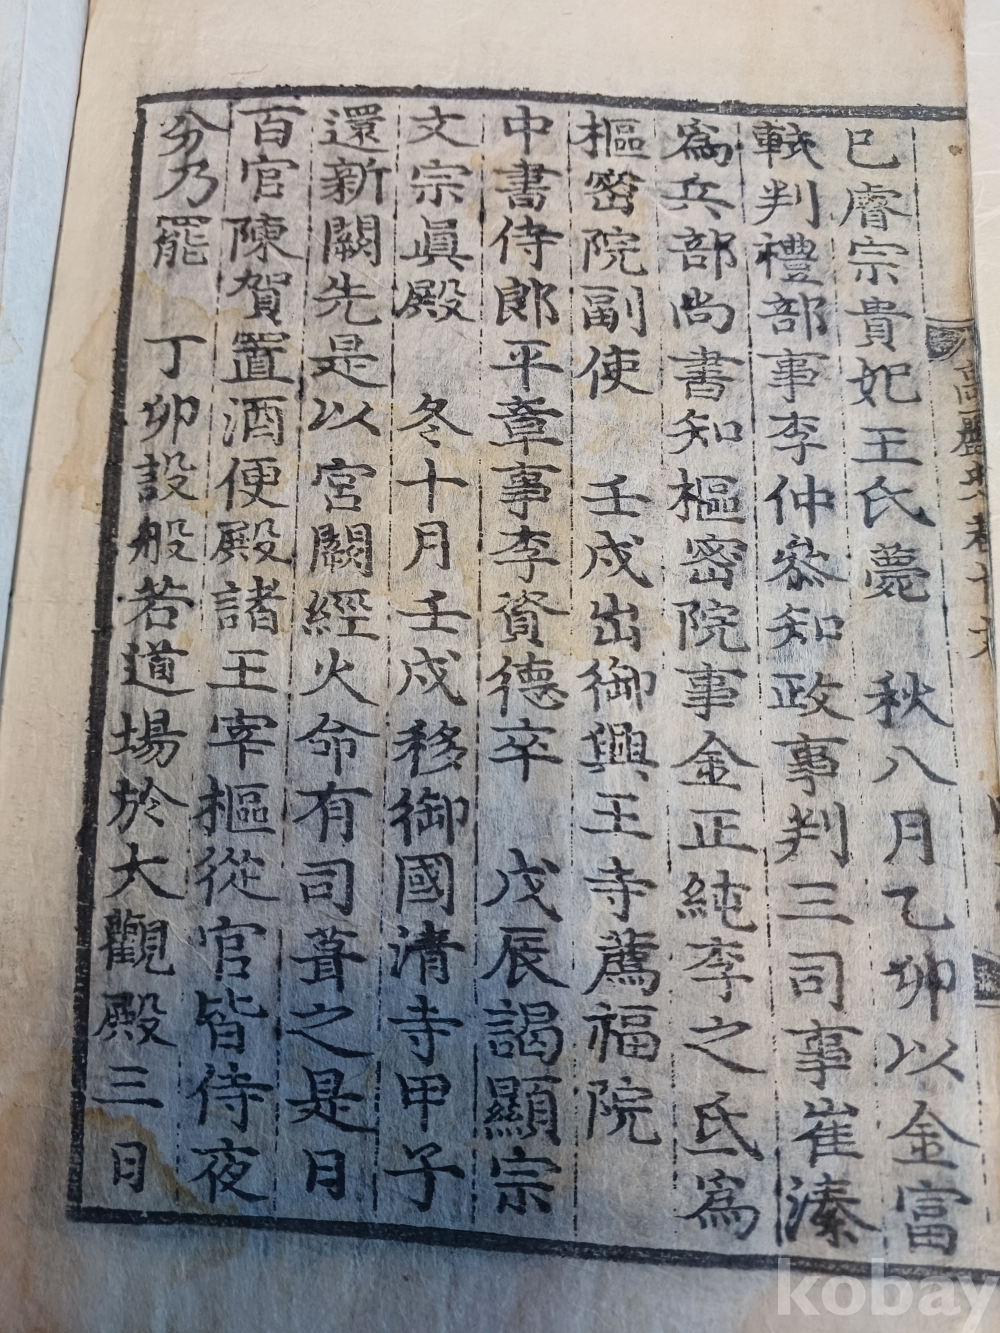 巳睿宗貴妃王氏薨 秋八月乙卯以金富
軾判禮部事李仲叅知政事判三司事崔溱
爲兵部尙書知樞密院事金正純李之氐爲
樞密院副使 壬戌出御興王寺薦福院
中書侍郎平章事李資德卒 戊辰謁顯宗
文宗眞殿 冬十月壬戌移御國淸寺甲子
還新闕先是以宮闕經火命有司葺之是日
百官陳賀置酒便殿諸王宰樞從官皆侍夜
分乃罷 丁卯設般若道場於大觀殿三日
高麗史卷十六
kobay